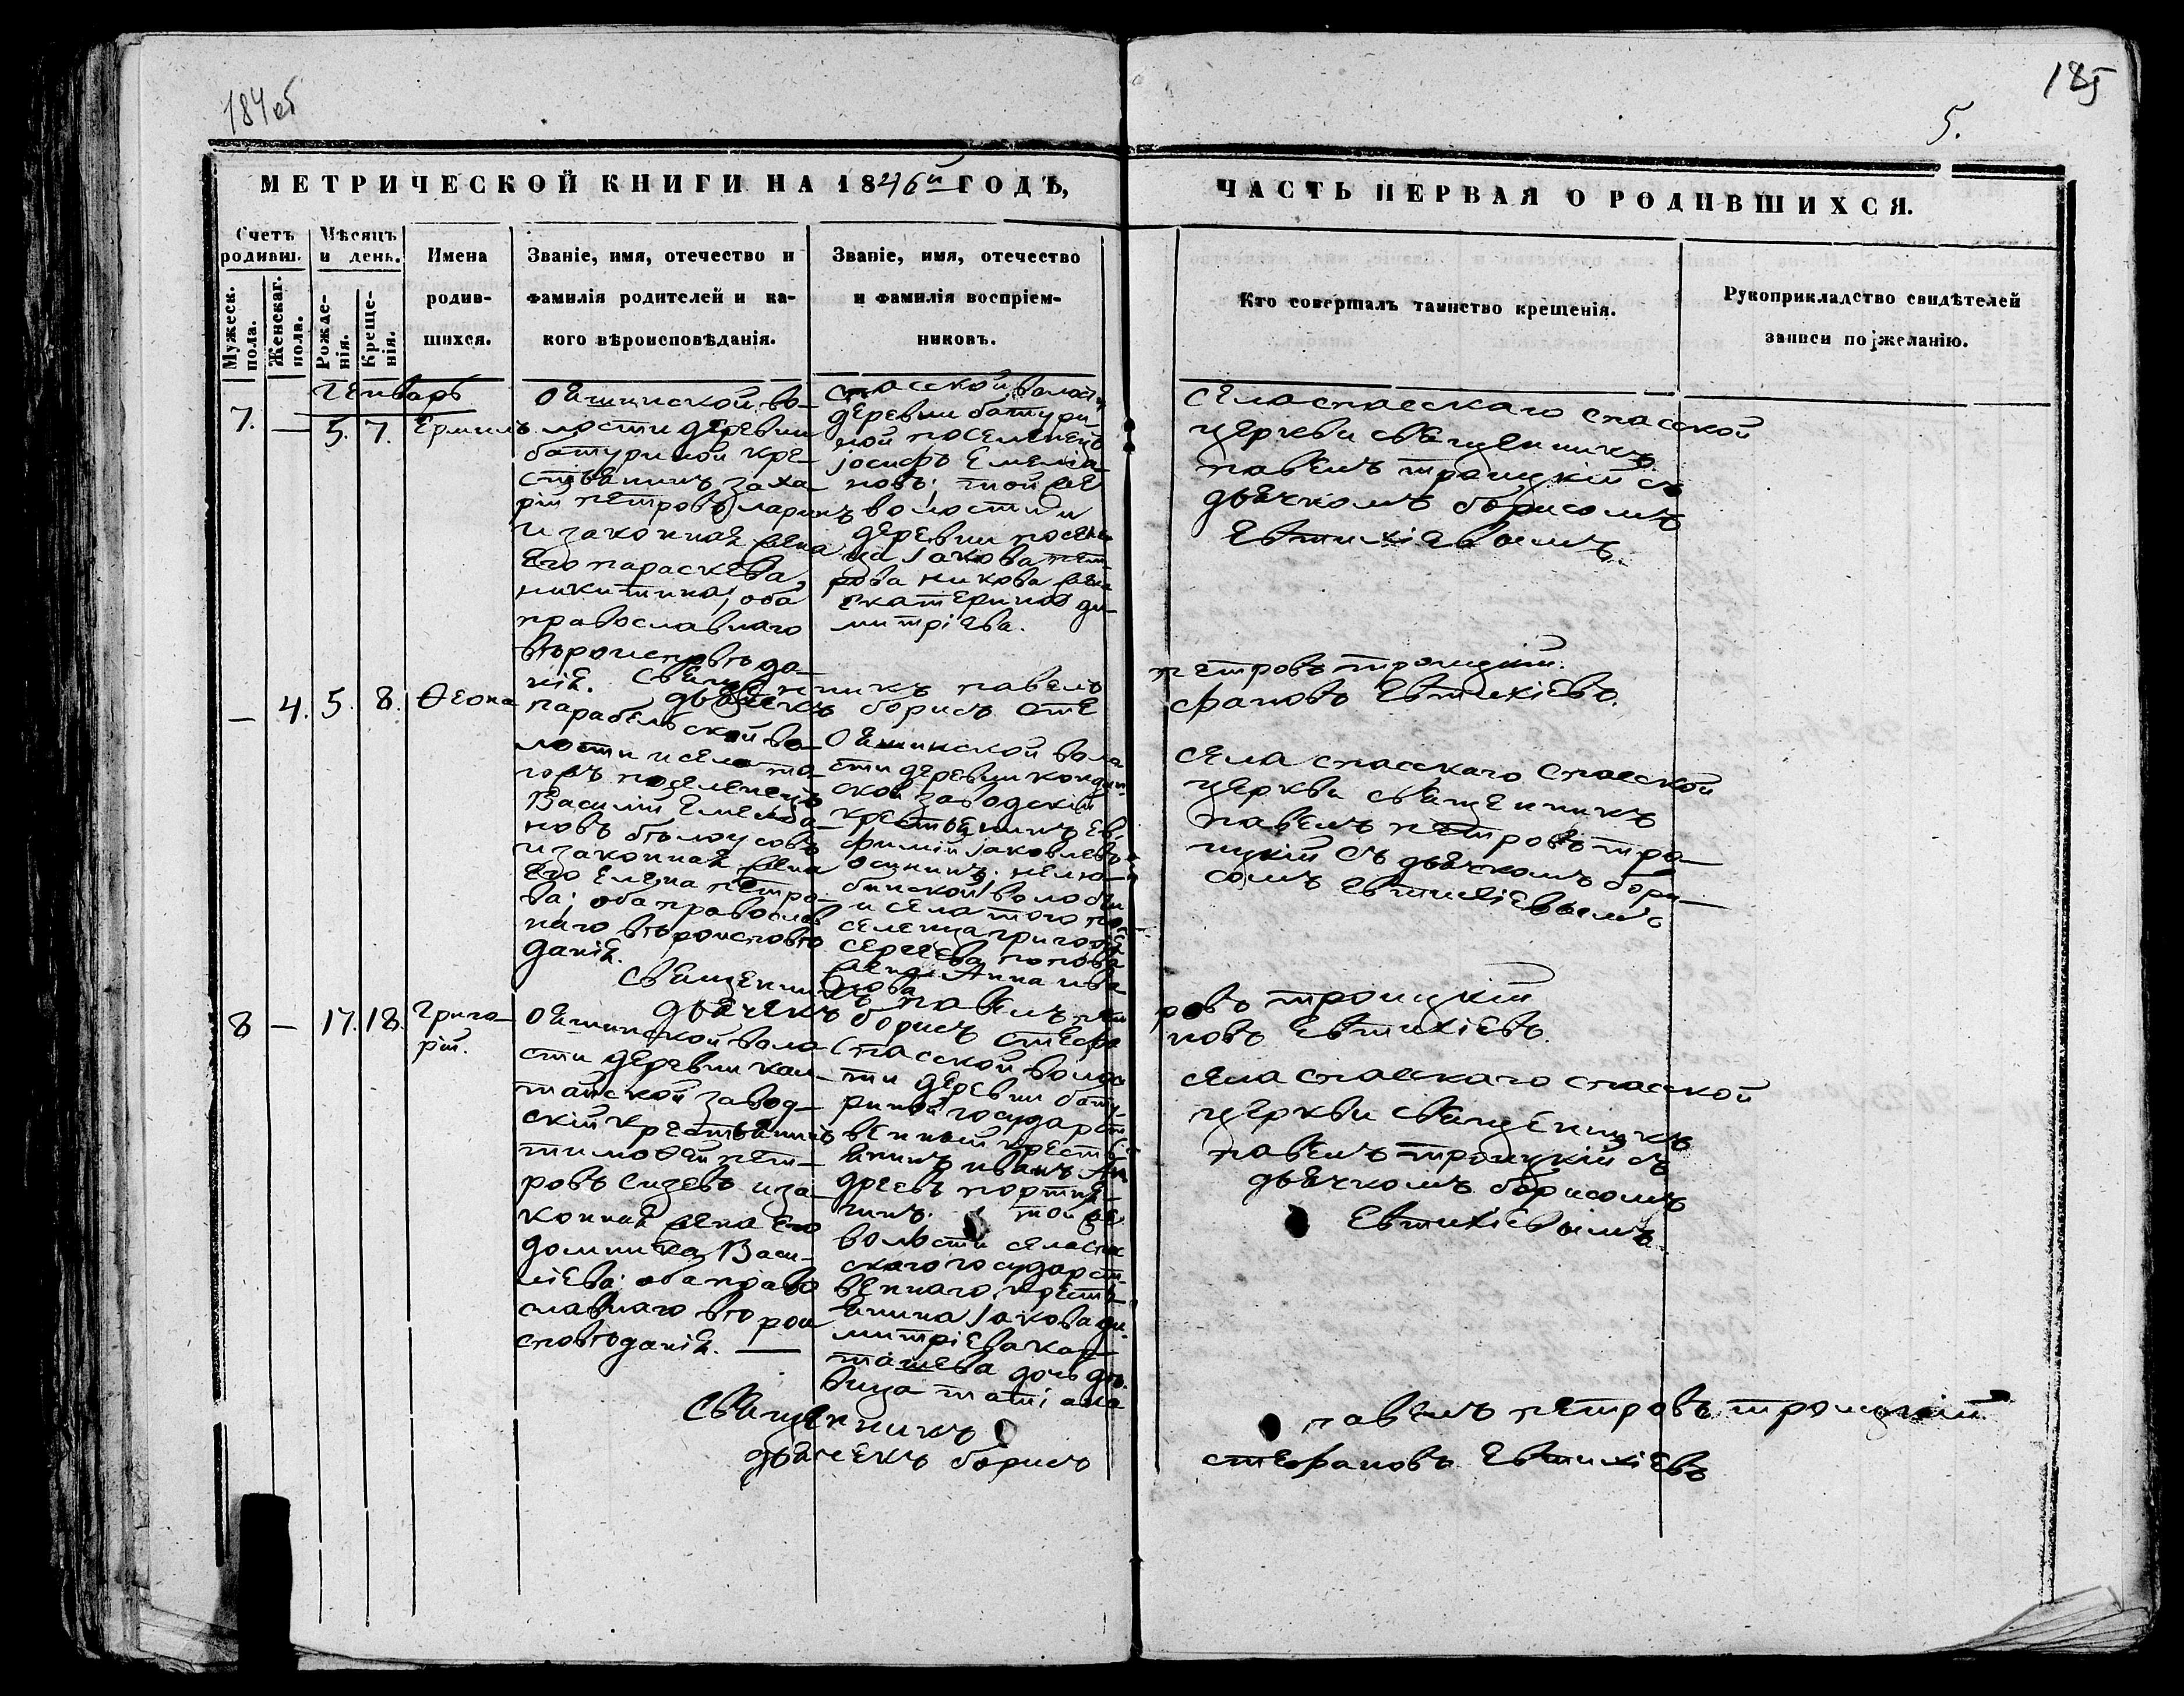 184 об
185
5.
МЕТРИЧЕСКОЙ КНИГИ НА 1846й ГОДЪ,
ЧАСТЬ ПЕРВАЯ О РОДИВШИХСЯ.
Счетъ родивш.
Мужеск. пола.
Женскаг. пола.
Мѣсяцъ и день.
Рожденія.
Крещенія.
Имена
родив-
шихся.
Званіе, имя, отечество и
фамилія родителей и ка-
кого вѣроисповѣданія.
Званіе, имя, отечество
и фамилія воспріем-
никовъ.
Кто совершалъ таинство крещенія.
Рукоприкладство свидѣтелей
записи по желанію.
Генварь
7. — 5. 7. Ермилъ
Ояшинской во-
лости деревни
батуриной кре-
стьянинъ заха-
рій петровъ
и законная жена
Его параскева
никитина; оба
православнаго
вѣроисповѣда-
нія.
спасской волости
деревни батури-
ной поселенецъ
іосифъ Емелія-
новъ; той же
волости и
деревни поселен-
ца іакова пет-
рова жена
екатерина ди-
митріева.
села спасскаго спасской
церкви священникъ
павелъ троицкій съ
дьячкомъ борисомъ
Евтихіевымъ.
Священникъ павелъ петровъ троицкій.
дьячекъ борисъ стефановъ Евтихіевъ.
— 4. 5. 8. Ѳеона
парабельской во-
лости и села то-
гожъ поселенецъ
Василій Емелья-
новъ бѣлоусовъ
и законная жена
Его Елена петро-
ва; оба православ
наго вѣроисповѣ
данія.
Ояшинской воло
сти деревни
ской заводскій
крестьянинъ Ев-
фимій іаковлевъ
осининъ; нелю-
бинской волости
и села того по-
селенца григорія
сергеева попова
жена Анна ива-
нова
села спасскаго спасской
церкви священникъ
павелъ петровъ тро-
ицкій съ дьячкомъ бори-
сомъ Евтихіевымъ
Священникъ павелъ петровъ троицкій
дьячекъ борисъ стефановъ Евтихіевъ.
8 — 17. 18. Григо-
рій.
Ояшинской воло
сти деревни кал-
тайской завод-
скій крестьянинъ
тимоѳей пет-
ровъ сизевъ и за-
конная жена его
домника Васи-
ліева; оба право
славнаго вѣрои
сповѣданія. —
Спасской волос
ти деревни бату-
риной государст
венный кресть
янинъ иванъ Ан
дреевъ портня-
гинъ. той же
волости села спас
скаго государст-
веннаго кресть
янина іакова ди-
митріева кар-
ташева дочь дѣ-
вица татіана
села спасскаго спасской
церкви священникъ
павелъ троицкій съ
дьячкомъ борисомъ
Евтихіевымъ
Священникъ павелъ петровъ троицкій
дьячекъ борисъ стефановъ Евтихіевъ